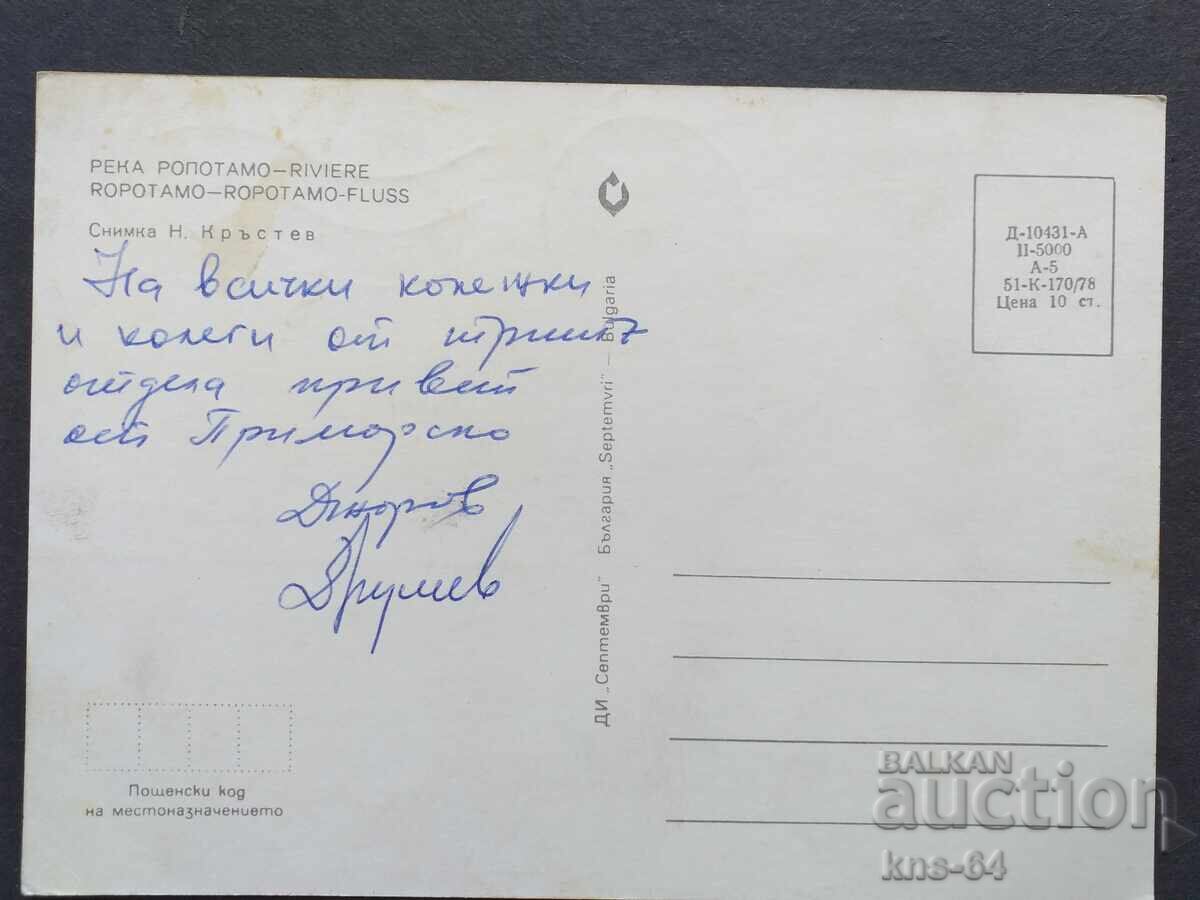 РЕКА РОПОТАМО—RIVIERE
ROPOTAMO—ROPOTAMO-FLUSS
Снимка Н. Кръстев
На всички колежки
и колеги от
отдела привет
от Приморско
Друмев
Пощенски код
на местоназначението
ДИ „Септември" България „Septemvri" — Bulgaria
Д-10431-А
II-5000
А-5
51-К-170/78
Цена 10 ст.
BALKAN
auction
kns-64